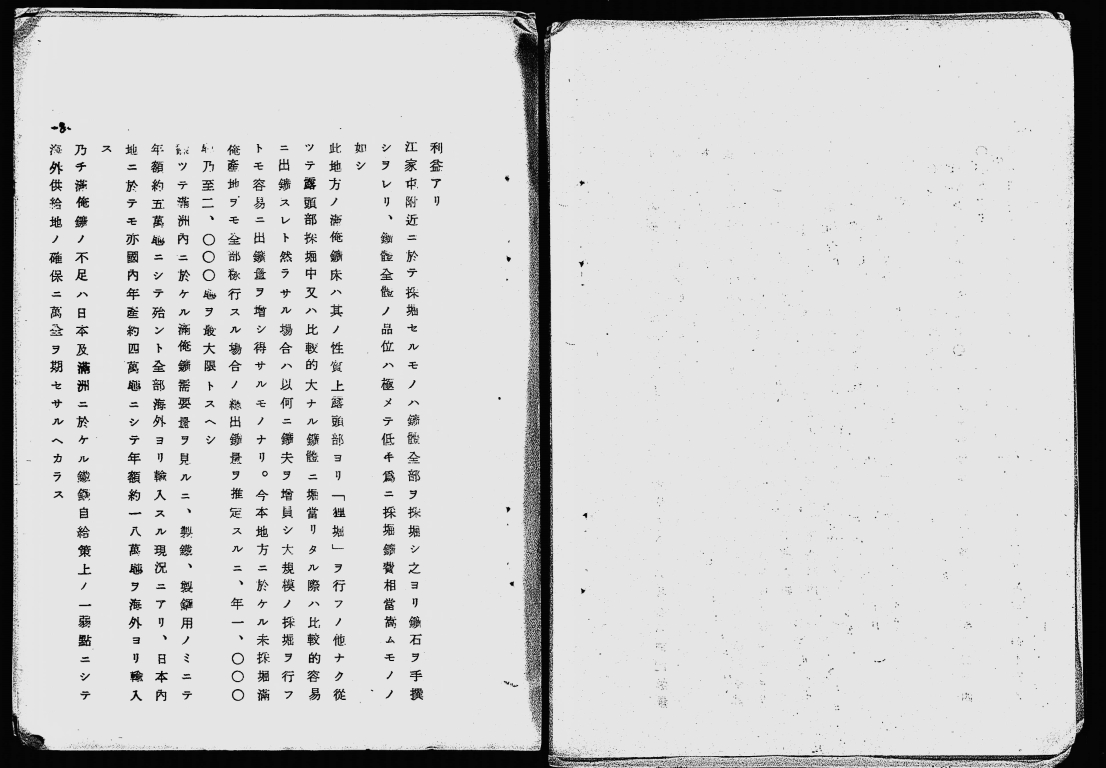 利益アリ
江家屯附近ニ於テ採堀セルモノハ鑛體全部ヲ採堀シ之ヨリ鑛石ヲ手撰
シヲレリ、鑛體全體ノ品位ハ極メテ低キ爲ニ採堀鑛費相當嵩ムモノノ
如シ
此地方ノ滿俺鑛床ハ其ノ性質上露頭部ヨリ「狸堀」ヲ行フノ他ナク從
ツテ露頭部採堀中又ハ比較的大ナル鑛體ニ堀當リタル際ハ比較的容易
ニ出鑛スレト然ラサル場合ハ以何ニ鑛夫ヲ增員シ大規模ノ採堀ヲ行フ
トモ容易ニ出鑛量ヲ增シ得サルモノナリ。今本地方ニ於ケル未採堀滿
俺產地ヲモ全部稼行スル場合ノ總出鑛量ヲ推定スルニ、年一、〇〇〇
乃至二、〇〇〇瓲ヲ最大限トスヘシ
ツテ滿洲內ニ於ケル滿俺鑛需要量ヲ見ルニ、製鐵、製鋼用ノミニテ
年額約五萬瓲ニシテ殆ント全部海外ヨリ輸入スル現況ニアリ、日本內
地ニ於テモ亦國內年產約四萬瓲ニシテ年額約一八萬瓲ヲ海外ヨリ輸入
ス
乃チ滿俺鑛ノ不足ハ日本及滿洲ニ於ケル鐵鋼自給策上ノ一弱點ニシテ
海外供給地ノ確保ニ萬全ヲ期セサルヘカラス
-8-